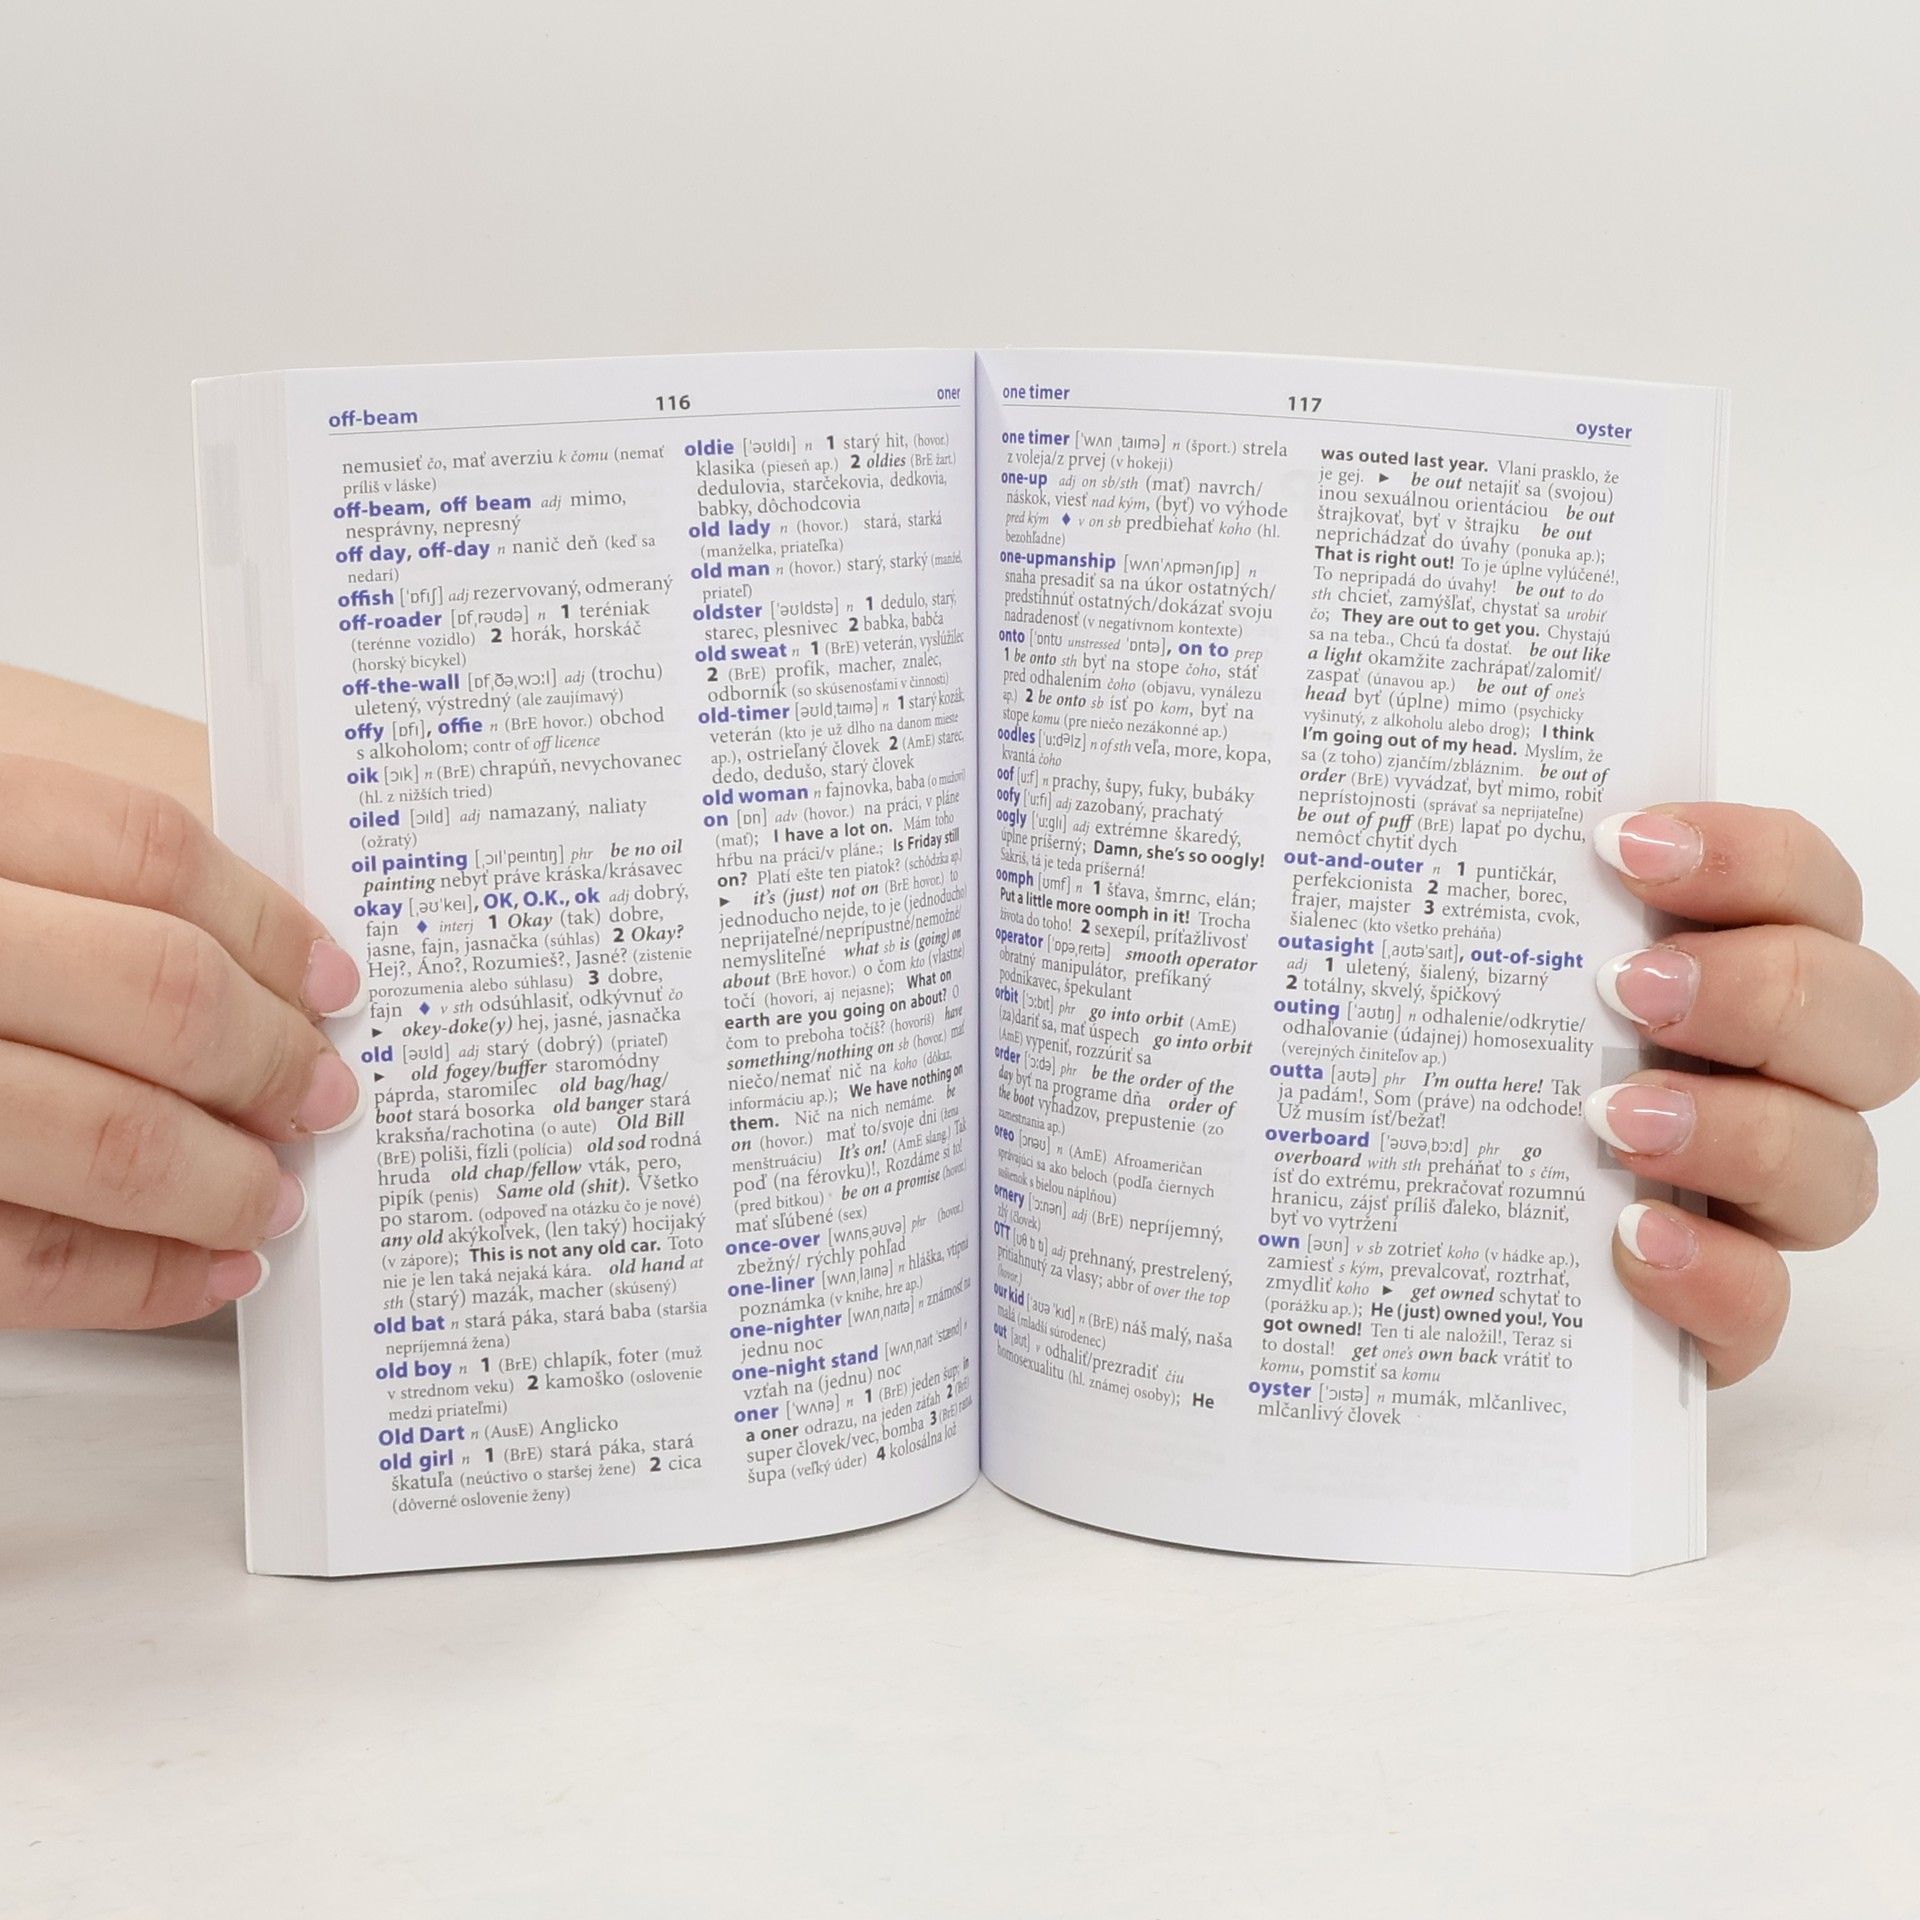 off-beam
116
oner
nemusieť čo, mať averziu k čomu (nemať
príliš v láske)
off-beam, off beam adj mimo,
nesprávny, nepresný
off day, off-day n nanič deň (keď sa
nedarí)
offish ['ɒfɪʃ] adj rezervovaný, odmeraný
off-roader [ɒfˌrəʊdə] n 1 teréniak
(terénne vozidlo) 2 horák, horskáč
(horský bicykel)
off-the-wall [ɒfˌðəˌwɔ:l] adj (trochu)
uletený, výstredný (ale zaujímavý)
offy [ɒfɪ], offie n (BrE hovor.) obchod
s alkoholom; contr of off licence
oik [ɔɪk] n (BrE) chrapúň, nevychovanec
(hl. z nižších tried)
oiled [ɔɪld] adj namazaný, naliaty
(ožratý)
oil painting [ˌɔɪl'peɪntɪŋ] phr be no oil
painting nebyť práve kráska/krásavec
okay [ˌəʊ'keɪ], OK, O.K., ok adj dobrý,
fajn ♦ interj 1 Okay (tak) dobre,
jasne, fajn, jasnačka (súhlas) 2 Okay?
Hej?, Áno?, Rozumieš?, Jasné? (zistenie
porozumenia alebo súhlasu) 3 dobre,
fajn ♦ v sth odsúhlasiť, odkývnuť čo
► okey-doke(y) hej, jasné, jasnačka
old [əʊld] adj starý (dobrý) (priateľ)
► old fogey/buffer staromódny
páprda, staromilec old bag/hag/
boot stará bosorka old banger stará
kraksňa/rachotina (o aute) Old Bill
(BrE) poliši, fízli (polícia) old sod rodná
hruda old chap/fellow vták, pero,
pipík (penis) Same old (shit). Všetko
po starom. (odpoveď na otázku čo je nové)
any old akýkoľvek, (len taký) hocijaký
(v zápore); This is not any old car. Toto
nie je len taká nejaká kára. old hand at
sth (starý) mazák, macher (skúsený)
old bat n stará páka, stará baba (staršia
nepríjemná žena)
old boy n 1 (BrE) chlapík, foter (muž
v strednom veku) 2 kamoško (oslovenie
medzi priateľmi)
Old Dart n (AusE) Anglicko
old girl n 1 (BrE) stará páka, stará
škatuľa (neúctivo o staršej žene) 2 cica
(dôverné oslovenie ženy)
oldie ['əʊldɪ] n 1 starý hit, (hovor.)
klasika (pieseň ap.) 2 oldies (BrE žart.)
dedulovia, starčekovia, dedkovia,
babky, dôchodcovia
old lady n (hovor.) stará, starká
(manželka, priateľka)
old man n (hovor.) starý, starký (manžel,
priateľ)
oldster ['əʊldstə] n 1 dedulo, starý,
starec, plesnivec 2 babka, babča
old sweat n 1 (BrE) veterán, vyslúžilec
2 (BrE) profík, macher, znalec,
odborník (so skúsenosťami v činnosti)
old-timer [əʊldˌtaɪmə] n 1 starý kozák,
veterán (kto je už dlho na danom mieste
ap.), ostrieľaný človek 2 (AmE) starec,
dedo, dedušo, starý človek
old woman n fajnovka, baba (o mužovi)
on [ɒn] adv (hovor.) na práci, v pláne
(mať); I have a lot on. Mám toho
hŕbu na práci/v pláne.; Is Friday still
on? Platí ešte ten piatok? (schôdzka ap.)
► it's (just) not on (BrE hovor.) to
jednoducho nejde, to je (jednoducho)
neprijateľné/neprípustné/nemožné/
nemysliteľné what sb is (going) on
about (BrE hovor.) o čom kto (vlastne)
točí (hovorí, aj nejasne); What on
earth are you going on about? O
čom to preboha točíš? (hovoríš) have
something/nothing on sb (hovor.) mať
niečo/nemať nič na koho (dôkaz,
informáciu ap.); We have nothing on
them. Nič na nich nemáme. be
on (hovor.) mať to/svoje dni (žena
menštruáciu) It's on! (AmE slang.) Tak
poď (na férovku)!, Rozdáme si to!
(pred bitkou) be on a promise (hovor.)
mať sľúbené (sex)
once-over [wʌnsˌəʊvə] phr (hovor.)
zbežný/ rýchly pohľad
one-liner [wʌnˌlaɪnə] n hláška, vtipná
poznámka (v knihe, hre ap.)
one-nighter [wʌnˌnaɪtə] n známosť na
jednu noc
one-night stand [wʌnˌnaɪt 'stænd] n
vzťah na (jednu) noc
oner ['wʌnə] n 1 (BrE) jeden šup; in
a oner odrazu, na jeden záťah 2 (BrE)
super človek/vec, bomba 3 (BrE) rana,
šupa (veľký úder) 4 kolosálna lož
one timer
117
oyster
one timer ['wʌn ˌtaɪmə] n (šport.) strela
z voleja/z prvej (v hokeji)
one-up adj on sb/sth (mať) navrch/
náskok, viesť nad kým, (byť) vo výhode
pred kým ♦ v on sb predbiehať koho (hl.
bezohľadne)
one-upmanship [wʌn'ʌpmənʃɪp] n
snaha presadiť sa na úkor ostatných/
predstihnúť ostatných/dokázať svoju
nadradenosť (v negatívnom kontexte)
onto ['ɒntʊ unstressed 'ɒntə], on to prep
1 be onto sth byť na stope čoho, stáť
pred odhalením čoho (objavu, vynálezu
ap.) 2 be onto sb ísť po kom, byť na
stope komu (pre niečo nezákonné ap.)
oodles ['u:dəlz] n of sth veľa, more, kopa,
kvantá čoho
oof [u:f] n prachy, šupy, fuky, bubáky
oofy ['u:fi] adj zazobaný, prachatý
oogly ['u:glɪ] adj extrémne škaredý,
úplne príšerný; Damn, she's so oogly!
Sakriš, tá je teda príšerná!
oomph [ʊmf] n 1 šťava, šmrnc, elán;
Put a little more oomph in it! Trocha
života do toho! 2 sexepíl, príťažlivosť
operator ['ɒpəˌreɪtə] smooth operator
obratný manipulátor, prefíkaný
podnikavec, špekulant
orbit ['ɔ:bɪt] phr go into orbit (AmE)
(za)dariť sa, mať úspech go into orbit
(AmE) vypeniť, rozzúriť sa
order ['ɔ:də] phr be the order of the
day byť na programe dňa order of
the boot vyhadzov, prepustenie (zo
zamestnania ap.)
oreo [ɔrəʊ] n (AmE) Afroameričan
správajúci sa ako beloch (podľa čiernych
sušienok s bielou náplňou)
ornery ['ɔ:nərɪ] adj (BrE) nepríjemný,
zlý (človek)
OTT adj prehnaný, prestrelený,
pritiahnutý za vlasy; abbr of over the top
(hovor.)
our kid ['aʊə 'kɪd] n (BrE) náš malý, naša
malá (mladší súrodenec)
out [aʊt] v odhaliť/prezradiť čiu
homosexualitu (hl. známej osoby); He
was outed last year. Vlani prasklo, že
je gej. ► be out netajiť sa (svojou)
inou sexuálnou orientáciou be out
štrajkovať, byť v štrajku be out
neprichádzať do úvahy (ponuka ap.);
That is right out! To je úplne vylúčené!,
To nepripadá do úvahy! be out to do
sth chcieť, zamýšľať, chystať sa urobiť
čo; They are out to get you. Chystajú
sa na teba., Chcú ťa dostať. be out like
a light okamžite zachrápať/zalomiť/
zaspať (únavou ap.) be out of one's
head byť (úplne) mimo (psychicky
vyšinutý, z alkoholu alebo drog); I think
I'm going out of my head. Myslím, že
sa (z toho) zjančím/zbláznim. be out of
order (BrE) vyvádzať, byť mimo, robiť
neprístojnosti (správať sa neprijateľne)
be out of puff (BrE) lapať po dychu,
nemôcť chytiť dych
out-and-outer n 1 puntičkár,
perfekcionista 2 macher, borec,
frajer, majster 3 extrémista, cvok,
šialenec (kto všetko preháňa)
outasight [ˌaʊtə'saɪt], out-of-sight
adj 1 uletený, šialený, bizarný
2 totálny, skvelý, špičkový
outing ['aʊtɪŋ] n odhalenie/odkrytie/
odhaľovanie (údajnej) homosexuality
(verejných činiteľov ap.)
outta [aʊtə] phr I'm outta here! Tak
ja padám!, Som (práve) na odchode!
Už musím ísť/bežať!
overboard ['əʊvəˌbɔ:d] phr go
overboard with sth preháňať to s čím,
ísť do extrému, prekračovať rozumnú
hranicu, zájsť príliš ďaleko, blázniť,
byť vo vytržení
own [əʊn] v sb zotrieť koho (v hádke ap.),
zamiesť s kým, prevalcovať, roztrhať,
zmydliť koho ► get owned schytať to
(porážku ap.); He (just) owned you!, You
got owned! Ten ti ale naložil!, Teraz si
to dostal! get one's own back vrátiť to
komu, pomstiť sa komu
oyster ['ɔɪstə] n mumák, mlčanlivec,
mlčanlivý človek